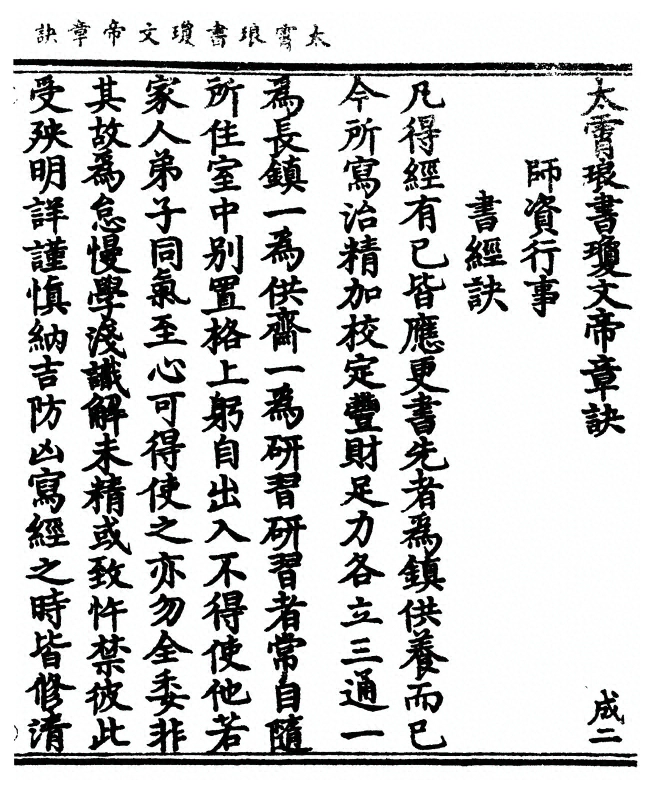 太霄琅書瓊文帝章訣
太霄琅書瓊文帝章訣
成二
師資行事
書經訣
凡得經有已皆應更書先者爲鎮供養而已
今所寫治精加校定豐財足力各立三通一
爲長鎮一爲供齋一爲研習研習者常自隨
所住室中別置格上躬自出入不得使他若
家人弟子同氣至心可得使之亦勿全委非
其故爲怠慢學淺識解未精或致忤禁彼此
受殃明詳謹慎納吉防凶寫經之時皆修清